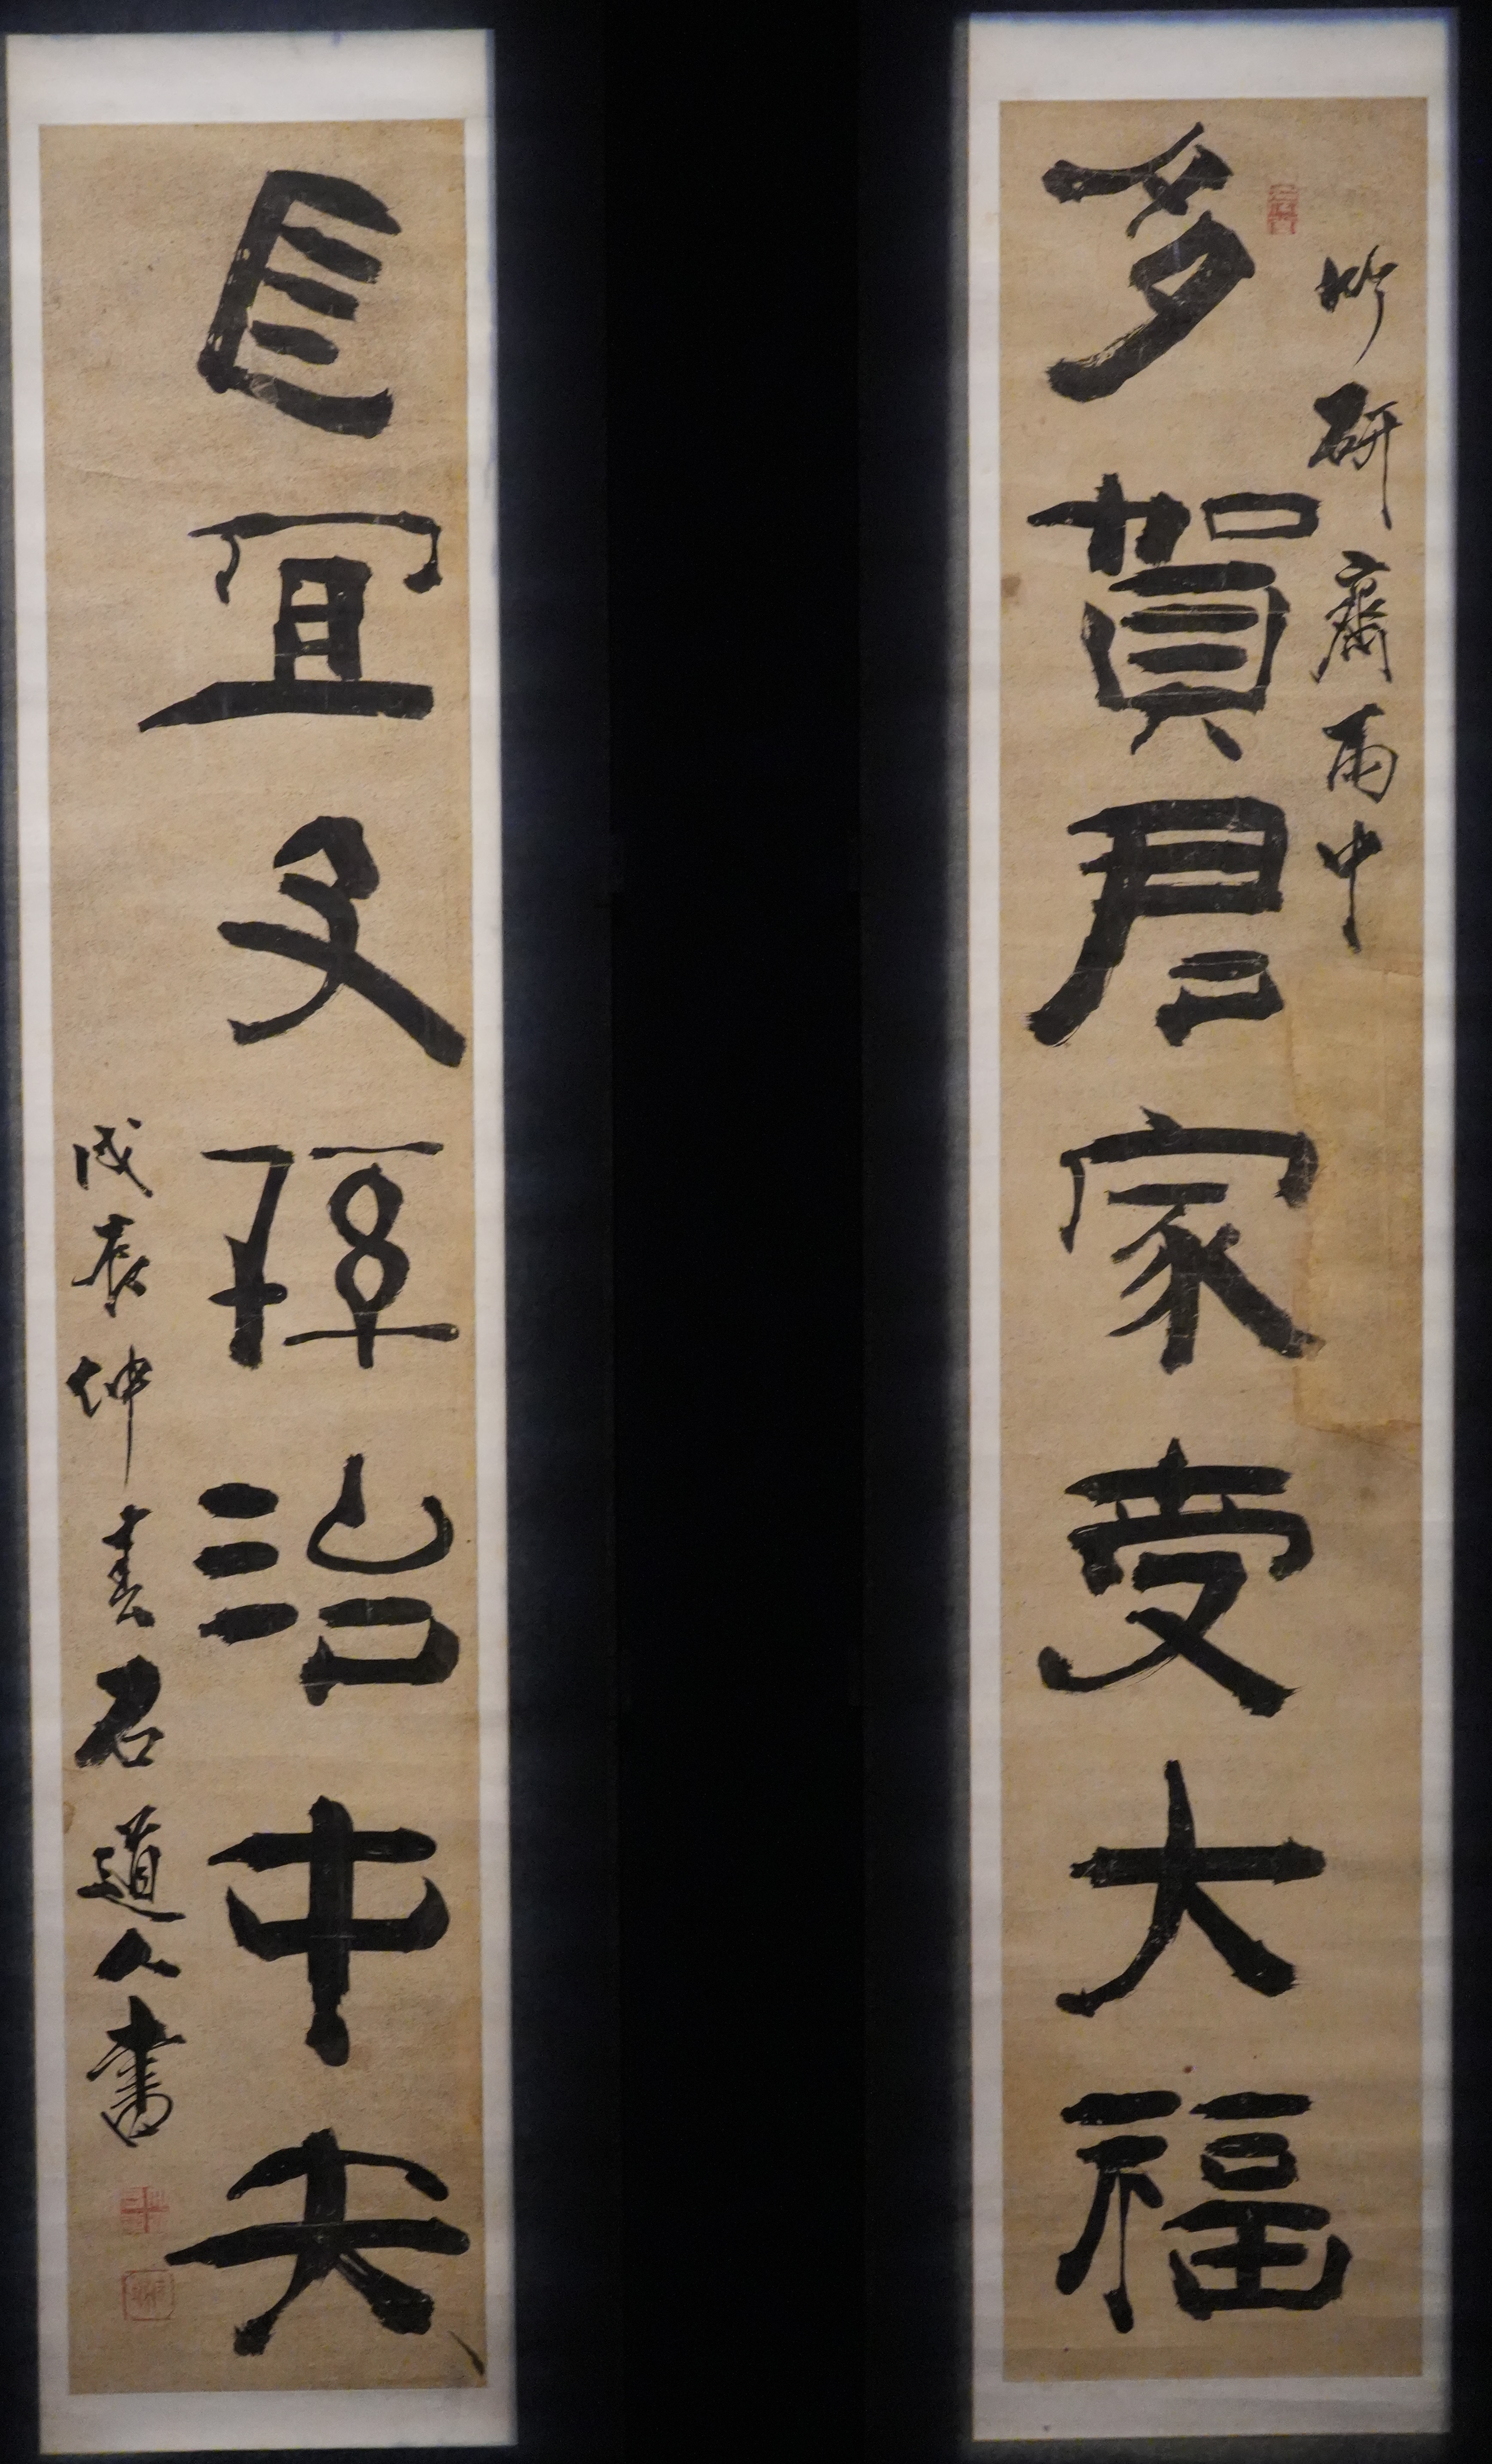 竹研齋雨中
多賀君家受大福
長宜文孫治中央
戊辰仲春石道人書